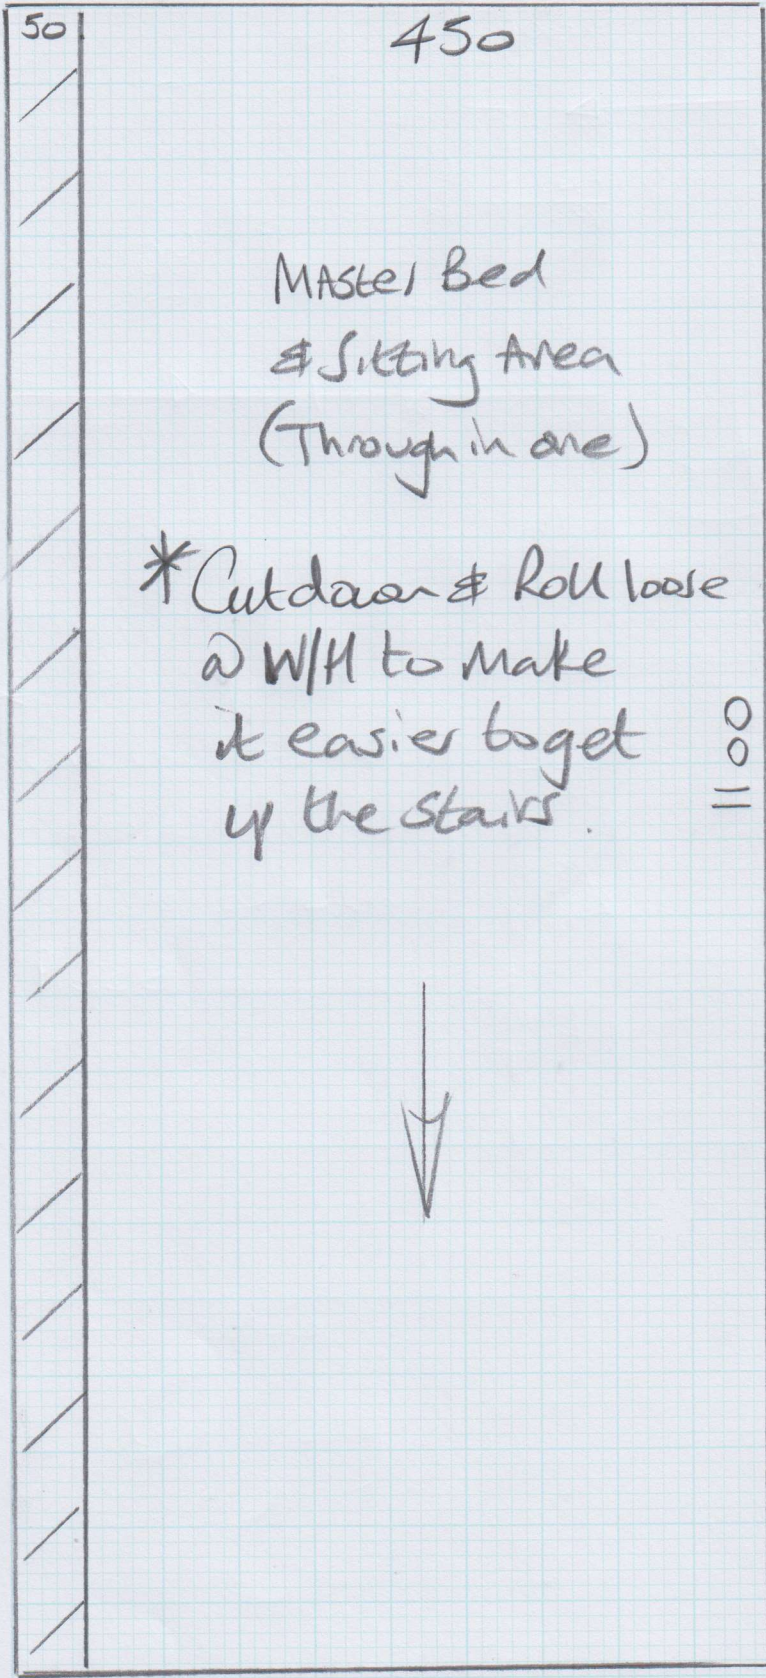 50
450
MASter Bed
& Sitting Area
(Through in one)
* Cutdown & Roll loose
@ W/H to Make
it easier to get
up the stairs.
1100